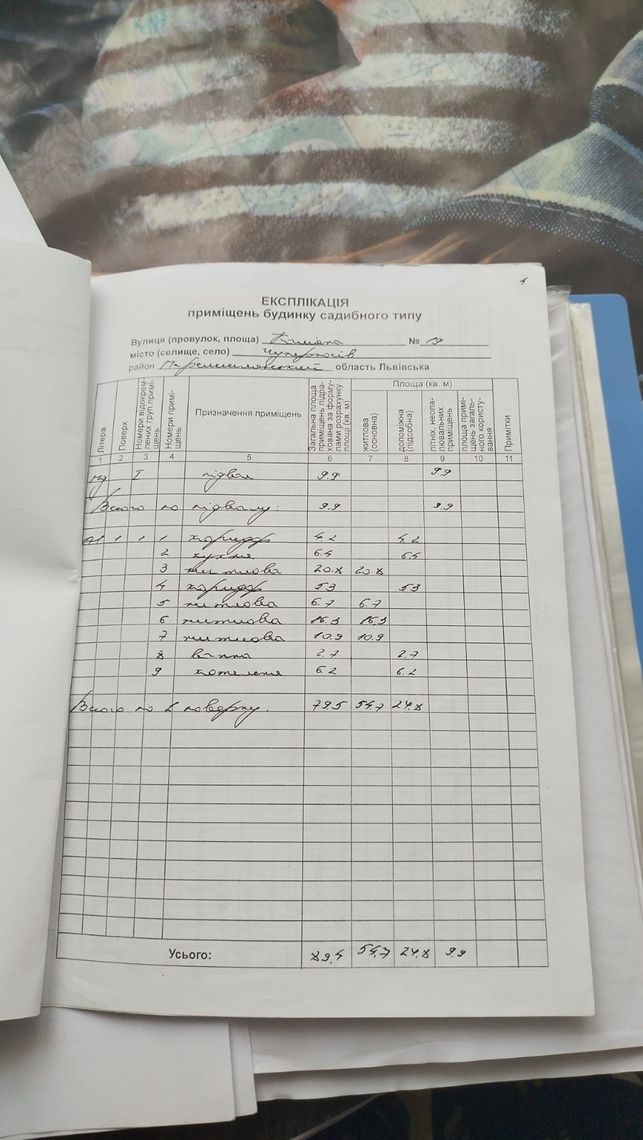 ЕКСПЛІКАЦІЯ
приміщень будинку садибного типу
Вулиця (провулок, площа) №
місто (селище, село) Чуперносів
район Перемишлянський область Львівська
Літера
Поверх
Номери відокрем-
лених груп примі-
щень
Номери примі-
щень
Призначення приміщень
Загальна площа
приміщень підра-
хована за форму-
лами розрахунку
площі (кв. м)
Площа (кв. м)
житлова
(основна)
допоміжна
(підсобна)
літніх, неопа-
лювальних
приміщень
площа примі-
щень загаль-
ного користу-
вання
Примітки
1 2 3 4 5 6 7 8 9 10 11
пд І підвал 9.9 9.9
Всього по підвалу: 9.9 9.9
1 1 1 коридор 4.2 4.2
2 кухня 6.4 6.4
3 житлова 20.8 20.8
4 коридор 5.3 5.3
5 житлова 6.7 6.7
6 житлова 16.3 16.3
7 житлова 10.9 10.9
8 ванна 2.7 2.7
9 котельня 6.2 6.2
Всього по 1 поверху: 79.5 54.7 24.8
Усього: 89.4 54.7 24.8 9.9